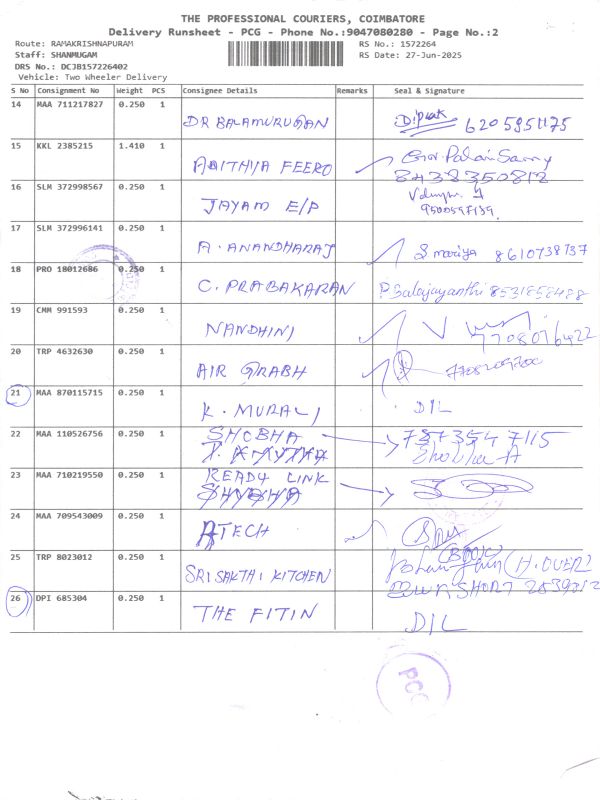 THE PROFESSIONAL COURIERS, COIMBATORE
Delivery Runsheet - PCG - Phone No.:9047080280 - Page No.:2
Route: RAMAKRISHNAPURAM RS No.: 1572264
Staff: SHANMUGAM RS Date: 27-Jun-2025
DRS No.: DCJB157226402
Vehicle: Two Wheeler Delivery
S No Consignment No Weight PCS Consignee Details Remarks Seal & Signature
14 MAA 711217827 0.250 1
DR BALAMURUGAN Dipak 6205951175
15 KKL 2385215 1.410 1
ADITHYA FEERO
8438350812
16 SLM 372998567 0.250 1
JAYAM E/P
9500597139
17 SLM 372996141 0.250 1
A. ANANDHARAJ S. mariya 8610738737
18 PRO 18012686 0.250 1
C. PRABAKARAN P. Balajayanthi 8531858488
19 CMM 991593 0.250 1
NANDHINI
7708076422
20 TRP 4632630 0.250 1
AIR GRABH
21 MAA 870115715 0.250 1
K. MURALI DIL
22 MAA 110526756 0.250 1
SHOBHA 737354 7115
Shobha A
23 MAA 710219550 0.250 1
READY LINK
SHOBHA
24 MAA 709543009 0.250 1
ATECH
25 TRP 8023012 0.250 1
SRI SAKTHI KITCHEN (H.OVER)
SHORT
26 DPI 685304 0.250 1
THE FITIN DIL
PCG